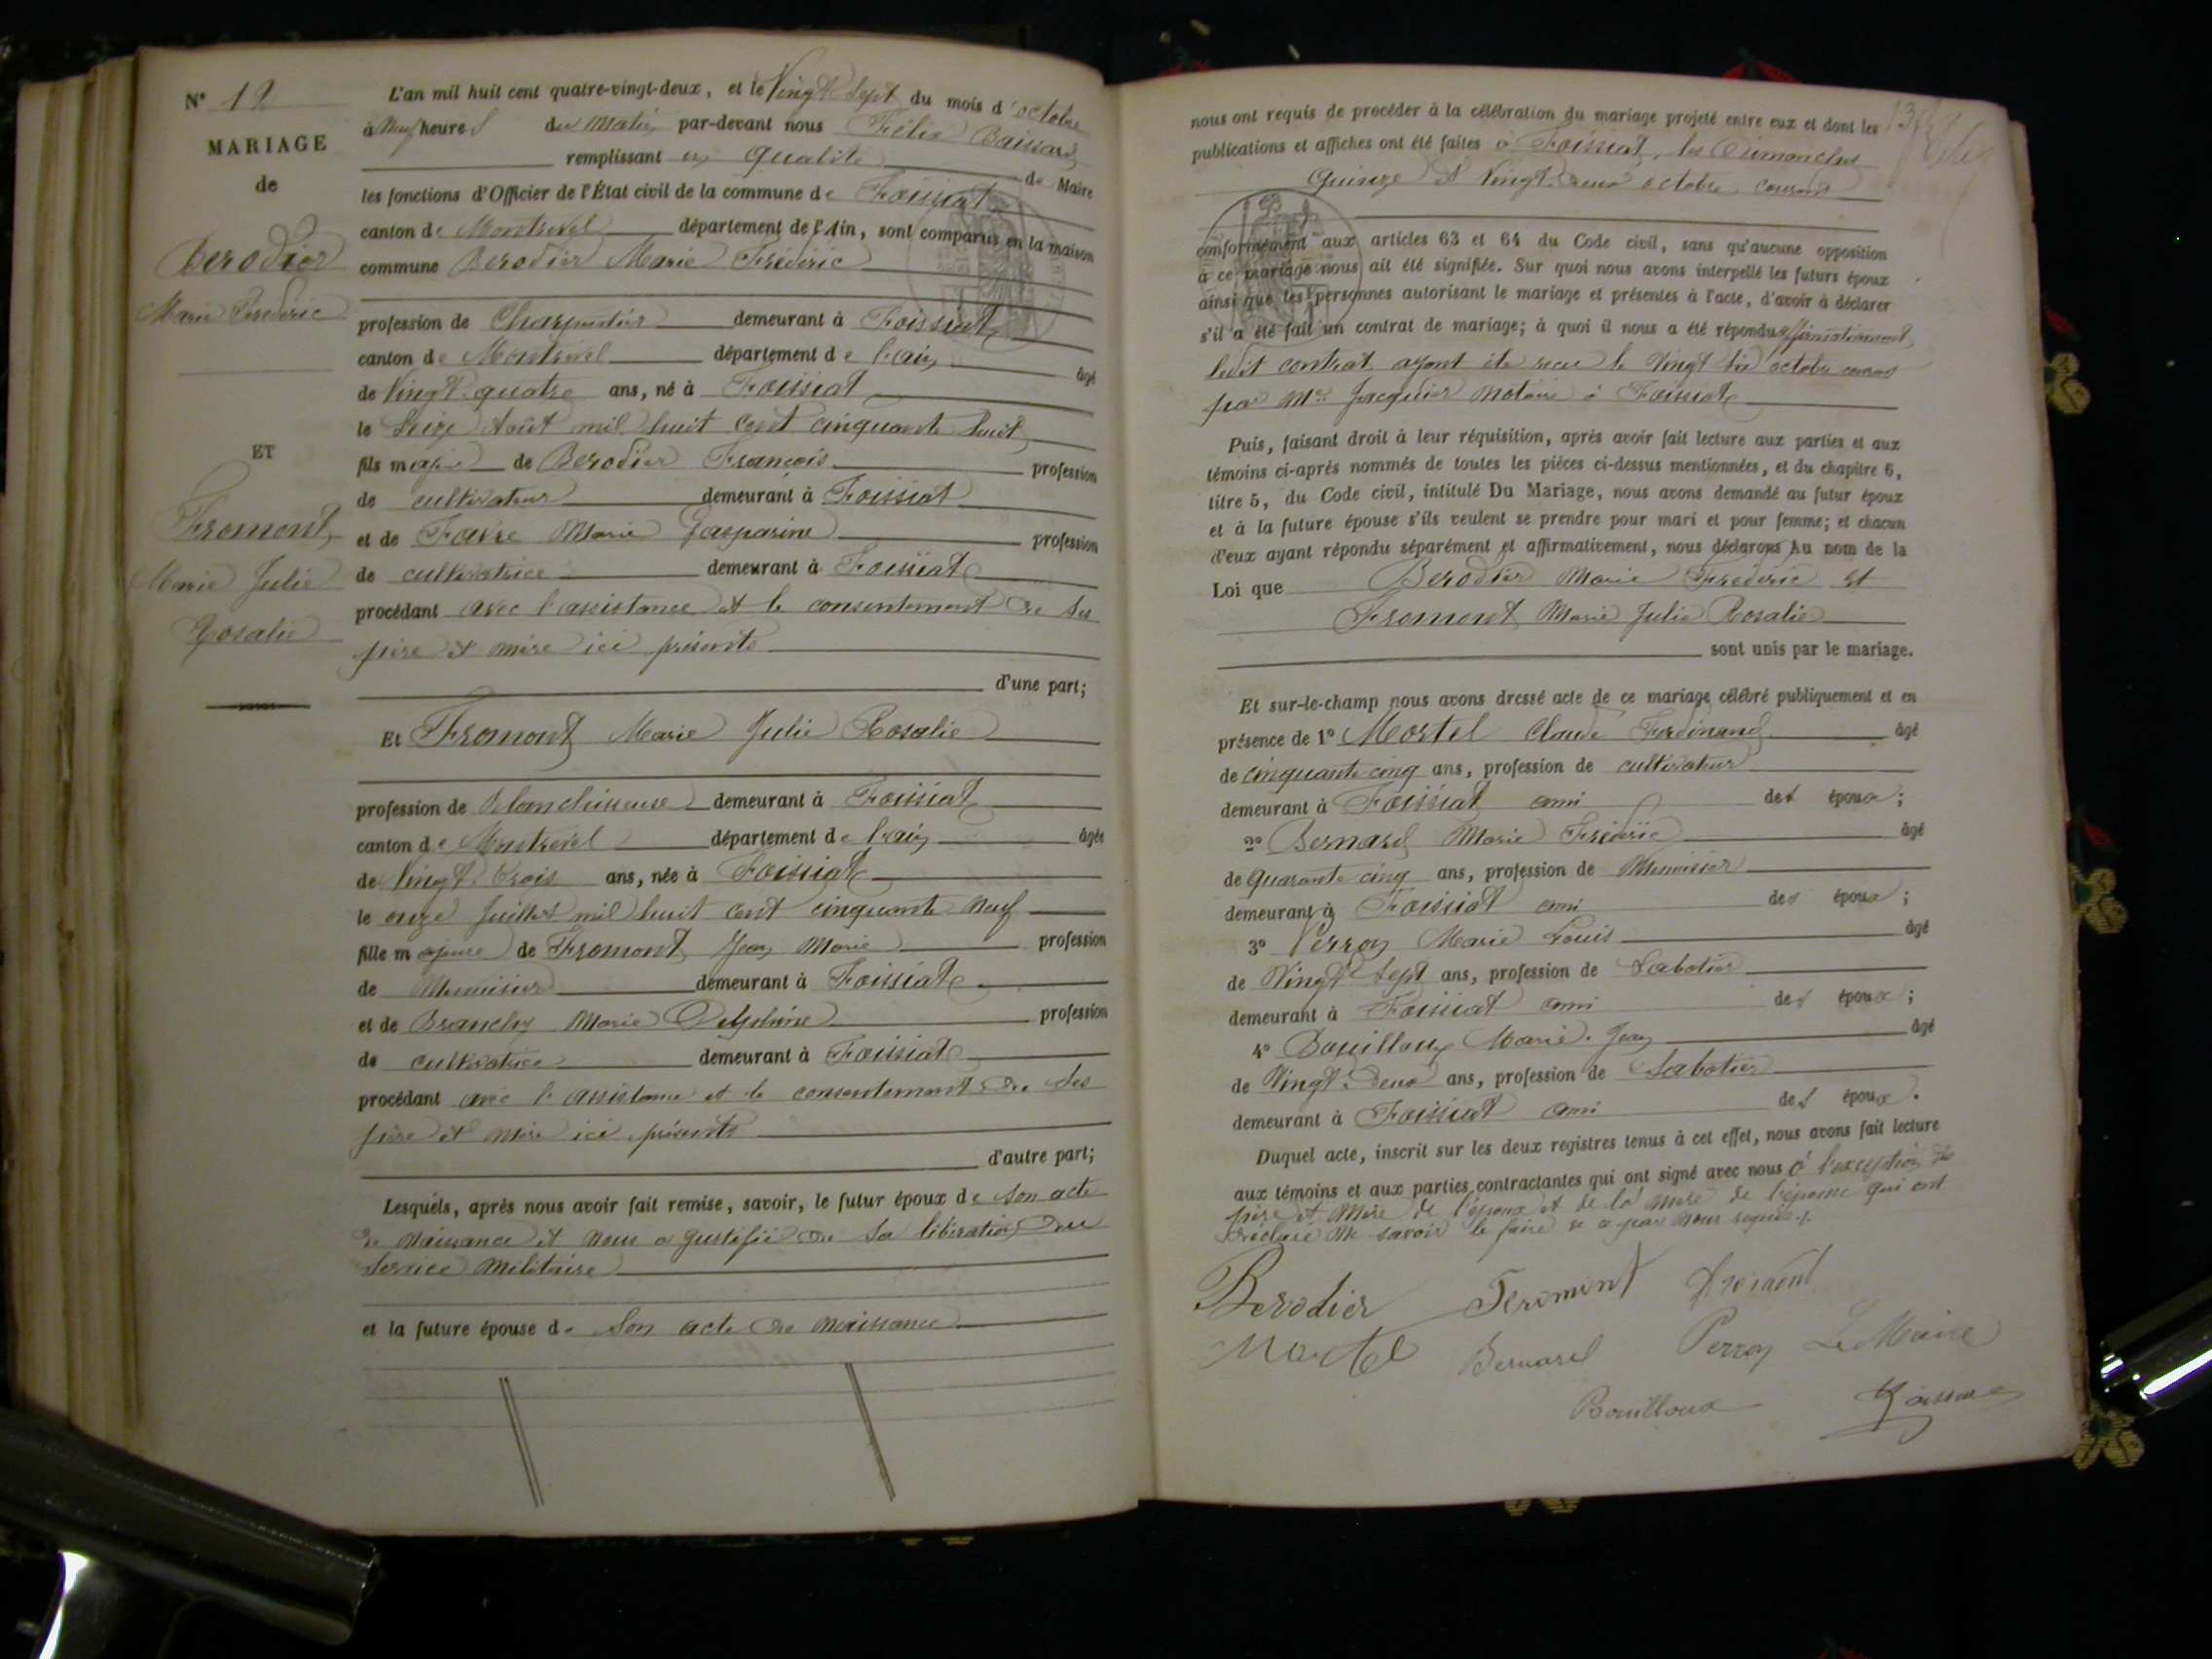 N° 12
MARIAGE
de
Berodier
Marie Frederic
ET
Fromont
Marie Julie
Rosalie
L'an mil huit cent quatre-vingt-deux, et le Vingt Sept du mois d'octobre
à Neuf heures du Matin par-devant nous Félix Baissard
remplissant en qualité de Maire
les fonctions d'Officier de l'État civil de la commune de Foissiat
canton de Montrevel département de l'Ain, sont comparus en la maison
commune Berodier Marie Frédéric
profession de Charpentier demeurant à Foissiat
canton de Montrevel département de l'ain âgé
de Vingt quatre ans, né à Foissiat
le Seize Août mil huit cent cinquante huit
fils majeur de Berodier François profession
de cultivateur demeurant à Foissiat
et de Favre Marie Gasparine profession
de cultivatrice demeurant à Foissiat
procédant avec l'assistance et le consentement de ses
père et mère ici présents
d'une part;
Et Fromont Marie Julie Rosalie
profession de Blanchisseuse demeurant à Foissiat
canton de Montrevel département de l'ain âgée
de Vingt trois ans, née à Foissiat
le onze Juillet mil huit cent cinquante neuf
fille majeure de Fromont Jean Marie profession
de Menuisier demeurant à Foissiat
et de Branchy Marie Delphine profession
de cultivatrice demeurant à Foissiat
procédant avec l'assistance et le consentement de ses
père et mère ici présents
d'autre part;
Lesquels, après nous avoir fait remise, savoir, le futur époux de son acte
de naissance et nous a justifié de sa libération du
Service Militaire
et la future épouse de Son acte de naissance
nous ont requis de procéder à la célébration du mariage projeté entre eux et dont les
publications et affiches ont été faites à Foissiat, les Dimanches
Quinze et Vingt deux octobre courant
conformément aux articles 63 et 64 du Code civil, sans qu'aucune opposition
à ce mariage nous ait été signifiée. Sur quoi nous avons interpellé les futurs époux
ainsi que les personnes autorisant le mariage et présentes à l'acte, d'avoir à déclarer
s'il a été fait un contrat de mariage; à quoi il nous a été répondu affirmativement,
ledit contrat ayant été recu le Vingt octobre
par Me Jacquier notaire à Foissiat
Puis, faisant droit à leur réquisition, après avoir fait lecture aux parties et aux
témoins ci-après nommés de toutes les pièces ci-dessus mentionnées, et du chapitre 6,
titre 5, du Code civil, intitulé Du Mariage, nous avons demandé au futur époux
et à la future épouse s'ils veulent se prendre pour mari et pour femme; et chacun
d'eux ayant répondu séparément et affirmativement, nous déclarons Au nom de la
Loi que Berodier Marie Frederic et
Fromont Marie Julie Rosalie
sont unis par le mariage.
Et sur-le-champ nous avons dressé acte de ce mariage célébré publiquement et en
présence de 1° Mortel Claude Ferdinand âgé
de cinquante cinq ans, profession de cultivateur
demeurant à Foissiat ami des époux;
2° Bernard Marie Frédéric âgé
de quarante cinq ans, profession de Menuisier
demeurant à Foissiat ami des époux;
3° Perron Marie Louis âgé
de Vingt Sept ans, profession de Sabotier
demeurant à Foissiat ami des époux;
4° Bouilloux Marie Jean âgé
de Vingt Deux ans, profession de Sabotier
demeurant à Foissiat ami des époux.
Duquel acte, inscrit sur les deux registres tenus à cet effet, nous avons fait lecture
aux témoins et aux parties contractantes qui ont signé avec nous à l'exception des
père et mère de l'époux et de la mère de l'épouse qui ont
déclaré ne savoir le faire de ce par nous requis
Berodier Fromont Fromont
Mortel Bernard Perron Le Maire
Bouilloux Baissard